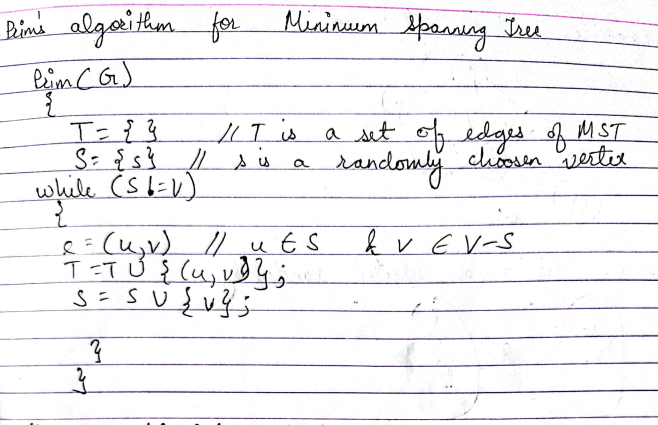 Prim's algorithm for Mininum Spanning Tree
Prim(G)
{
T = { } // T is a set of edges of MST
S = {s} // s is a randomly choosen vertex
while (S != V)
{
e = (u,v) // u ∈ S & v ∈ V-S
T = T ∪ {(u,v)};
S = S ∪ {v};
}
}